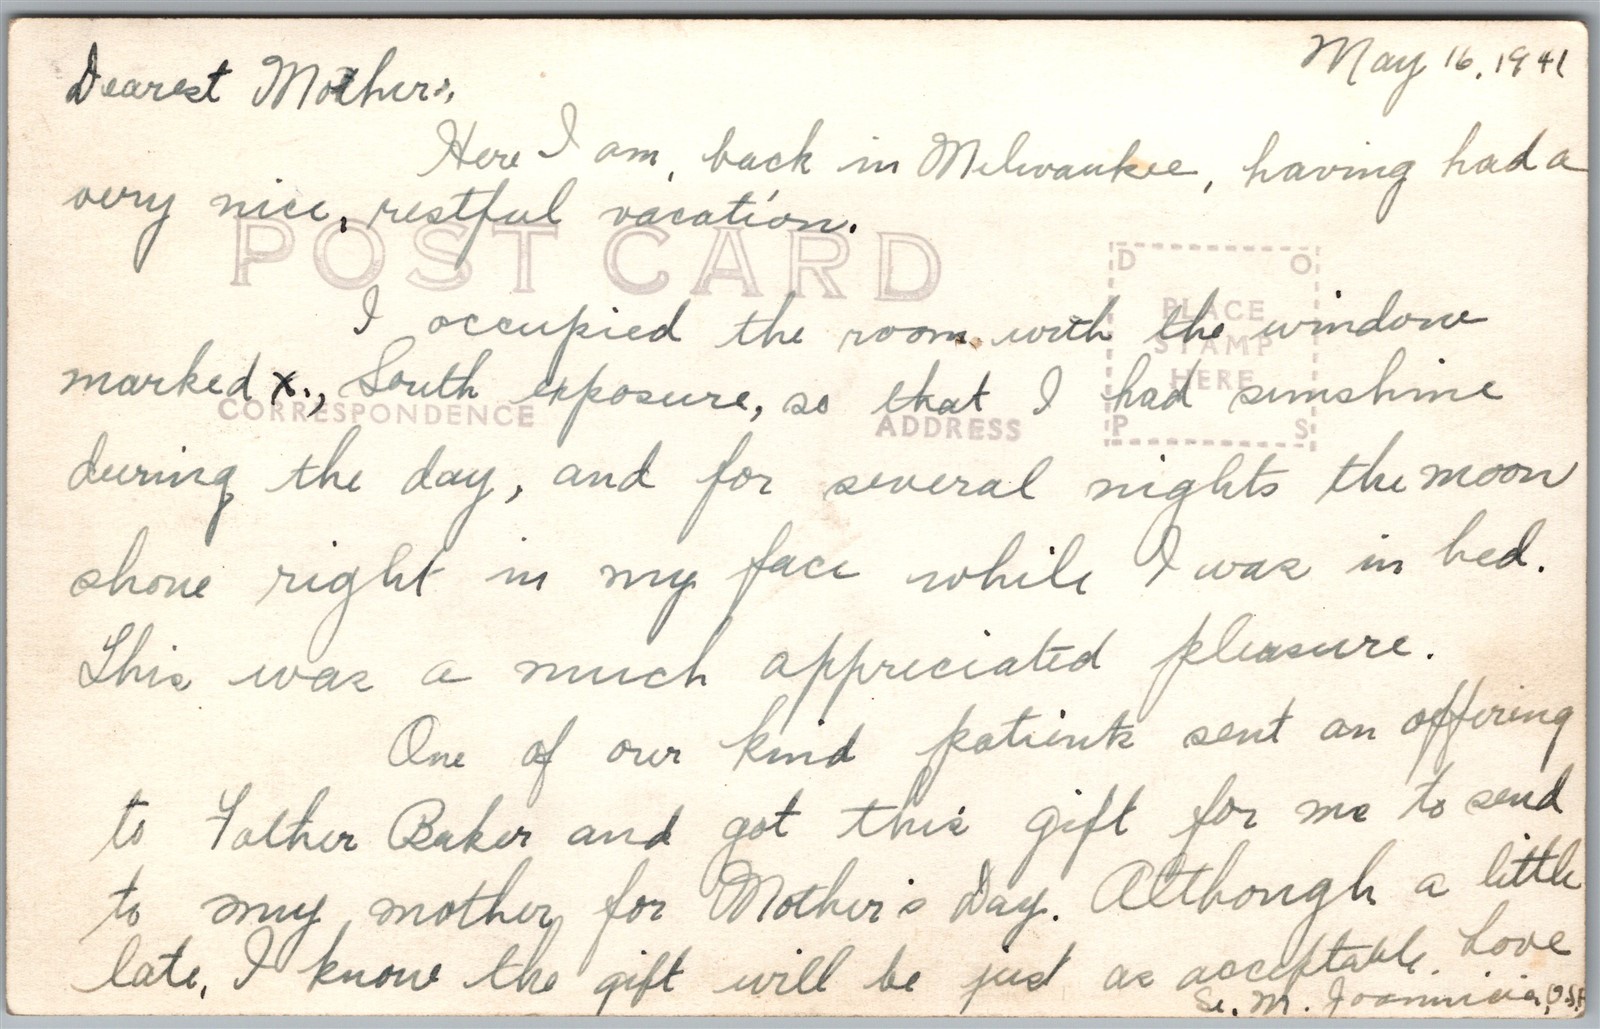 May 16, 1941
Dearest Mother,
Here I am, back in Milwaukee, having had a
very nice, restful vacation.
POST CARD
I occupied the room with the window
marked x., South exposure, so that I had sunshine
PLACE
STAMP
HERE
D O
P S
CORRESPONDENCE
ADDRESS
during the day, and for several nights the moon
shone right in my face while I was in bed.
This was a much appreciated pleasure.
One of our kind patients sent an offering
to Father Baker and got this gift for me to send
to my mother for Mother's Day. Although a little
late, I know the gift will be just as acceptable. Love
Sr. M. Joannicia, O.S.F.